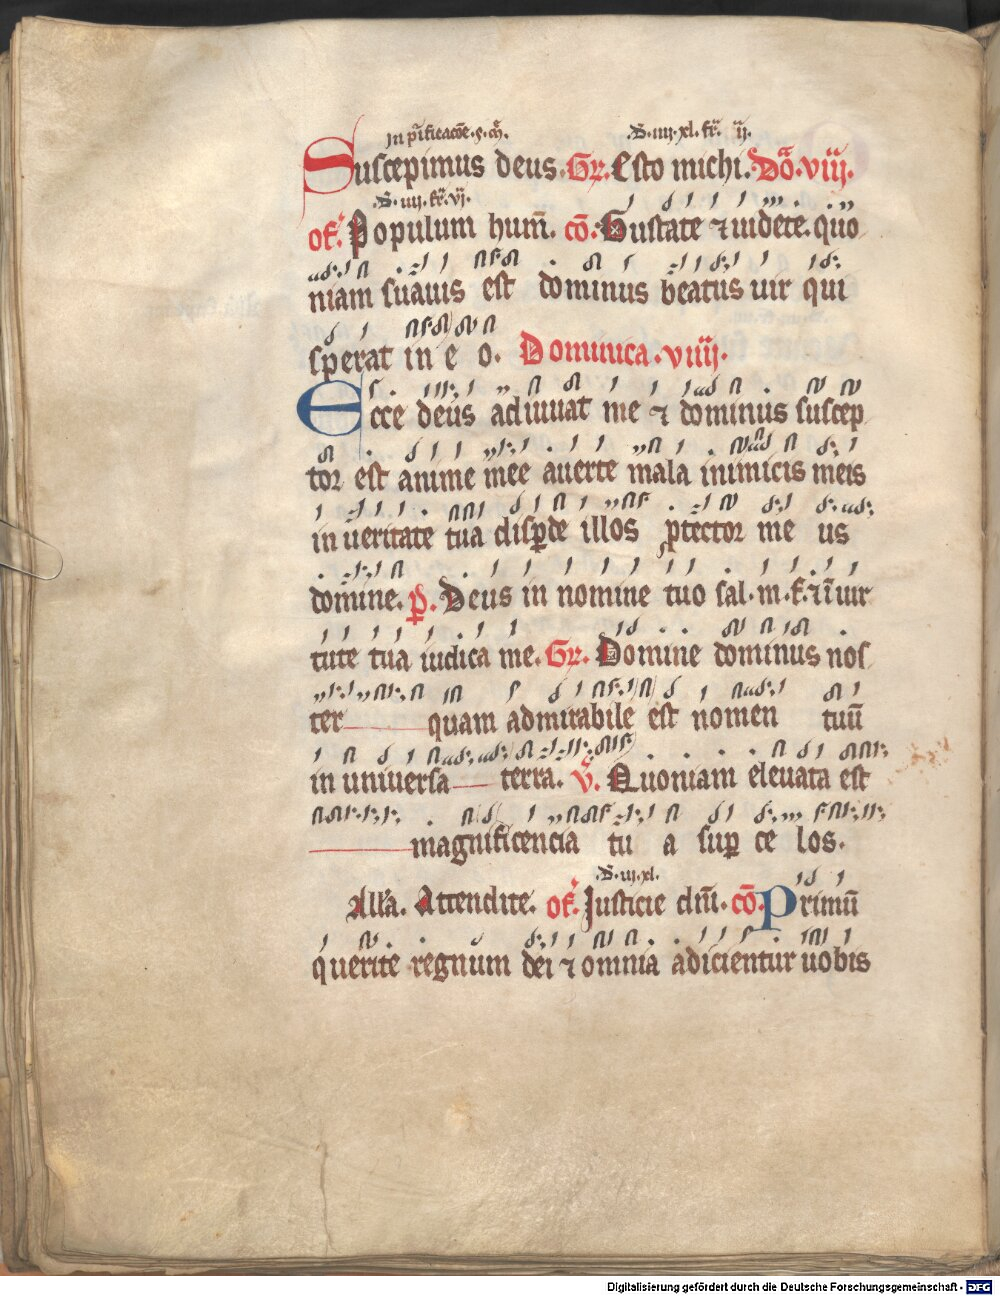 In p̄ificacōe·s·m̄. D̄·iiij·xl·fr̄ ij·
Suscepimus deus. Gr. Esto michi. Dō·viij·
D̄·iiij·fr̄·vj·
of. Populum hum̄. cō. Gustate ⁊ uidete. quo
niam suauis est dominus beatus uir qui
sperat in e o. Dominica·viiij·
Ecce deus adiuuat me ⁊ dominus suscep
tor est anime mee auerte mala inimicis meis
in ueritate tua disp̄de illos ꝓtector me us
domine. p̄. Deus in nomine tuo sal·m·f·⁊ ī uir
tute tua iudica me. Gr. Domine dominus nos
ter quam admirabile est nomen tuū
in uniuersa terra. v̄. Quoniam eleuata est
magnificencia tu a sup̄ ce los.
D̄·iij·xl·
All'a. Attendite. of. Justicie dn̄i. cō. Primū
querite regnum dei ⁊ omnia adicientur uobis
Digitalisierung gefördert durch die Deutsche Forschungsgemeinschaft - DFG